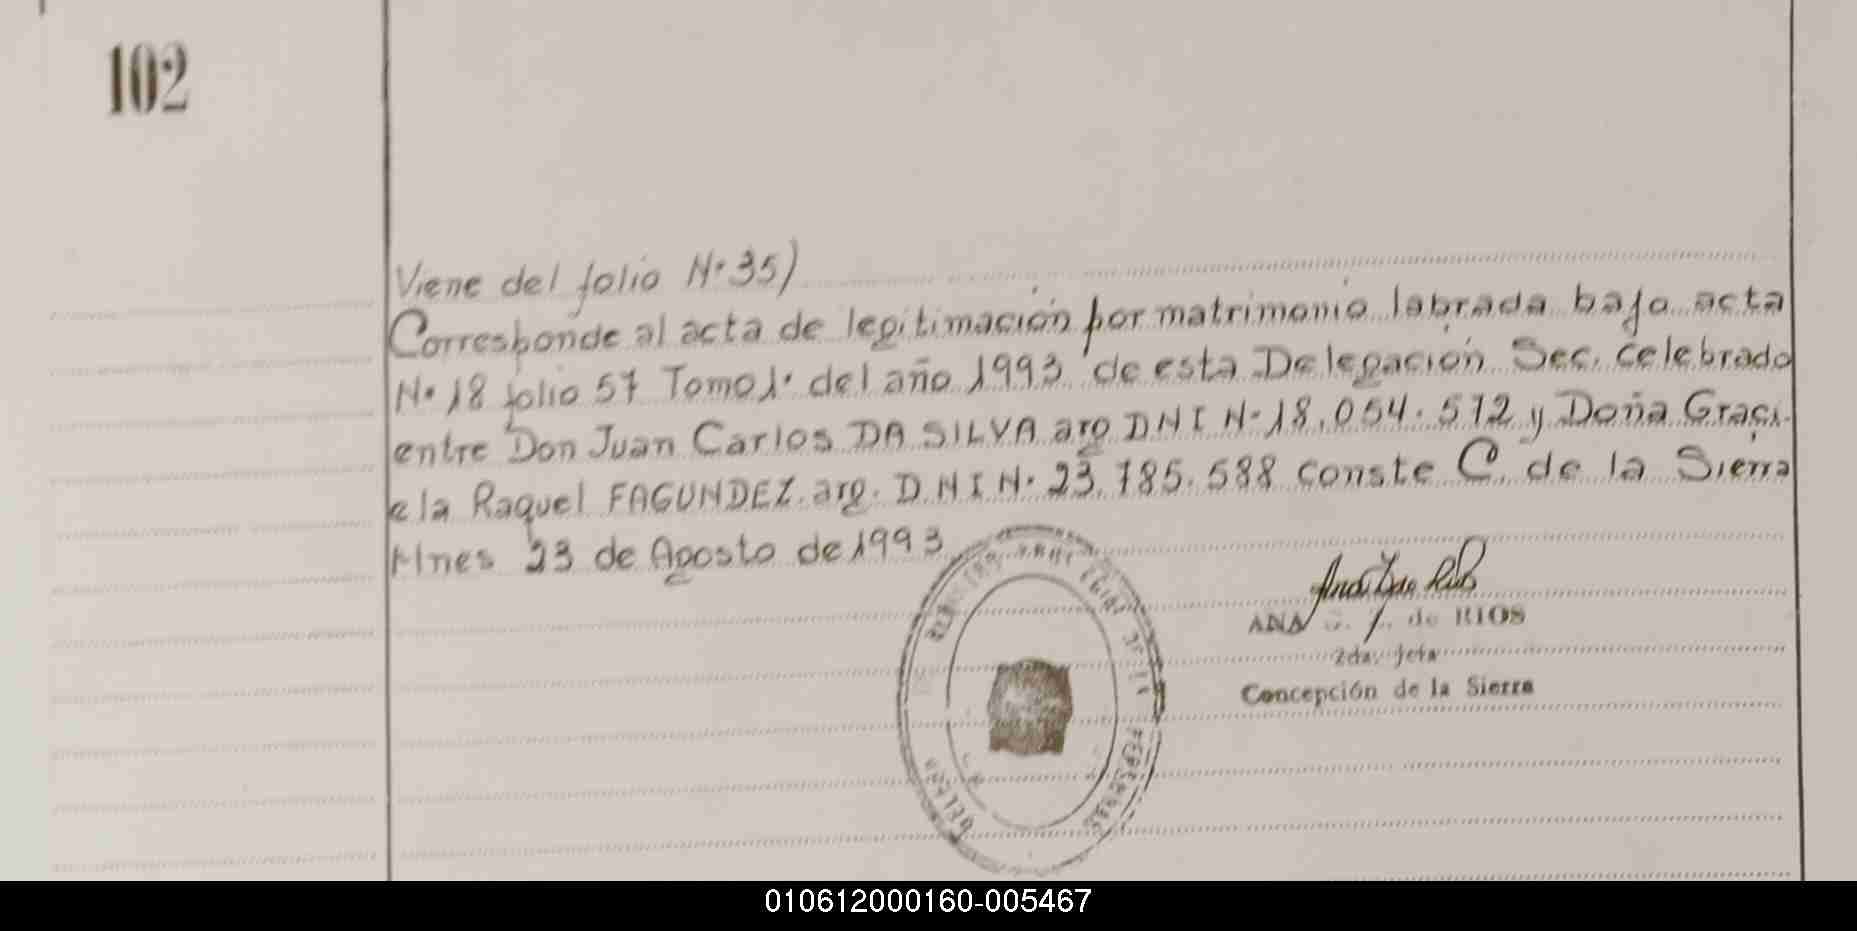 102
Viene del folio N° 35)
Corresponde al acta de legitimación por matrimonio labrada bajo acta
N° 18 folio 57 Tomo 1° del año 1993 de esta Delegación Sec. celebrado
entre Don Juan Carlos DA SILVA arg DNI N° 18.054.572 y Doña Graci-
ela Raquel FAGUNDEZ arg. DNI N° 23.785.588 conste C. de la Sierra
Mnes 23 de Agosto de 1993
ANA de RIOS
2da. Jefa
Concepción de la Sierra
DE LAS PERSONAS
010612000160-005467